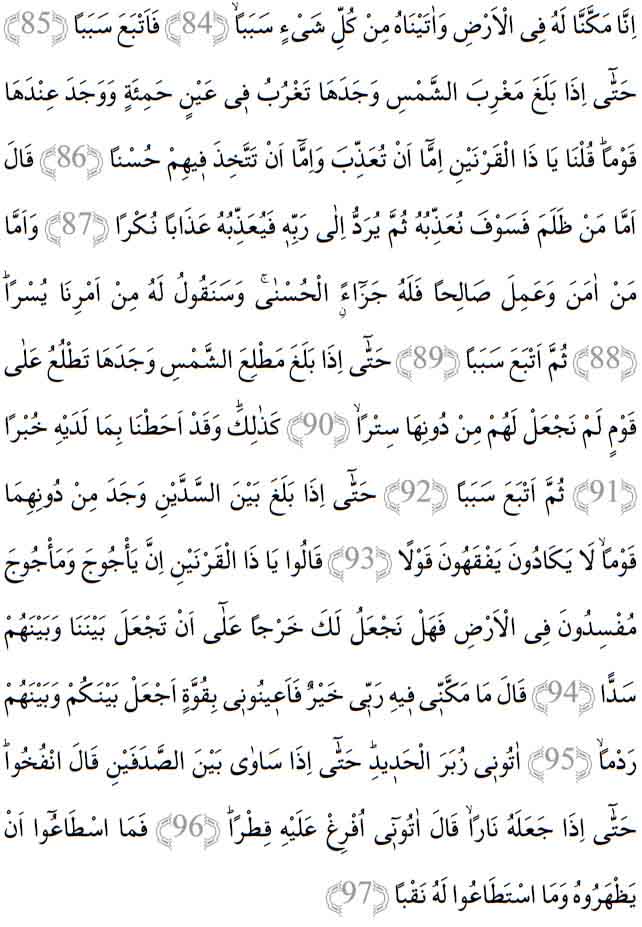 اِنَّا مَكَّنَّا لَهُ فِى الْاَرْضِ وَاٰتَيْنَاهُ مِنْ كُلِّ شَىْءٍ سَبَبًاۙ ﴿84﴾ فَاَتْبَعَ سَبَبًا ﴿85﴾
حَتّٰٓى اِذَا بَلَغَ مَغْرِبَ الشَّمْسِ وَجَدَهَا تَغْرُبُ فٖى عَيْنٍ حَمِئَةٍ وَوَجَدَ عِنْدَهَا
قَوْمًاؕ قُلْنَا يَا ذَا الْقَرْنَيْنِ اِمَّٓا اَنْ تُعَذِّبَ وَاِمَّٓا اَنْ تَتَّخِذَ فٖيهِمْ حُسْنًا ﴿86﴾ قَالَ
اَمَّا مَنْ ظَلَمَ فَسَوْفَ نُعَذِّبُهُ ثُمَّ يُرَدُّ اِلٰى رَبِّهٖ فَيُعَذِّبُهُ عَذَابًا نُكْرًا ﴿87﴾ وَاَمَّا
مَنْ اٰمَنَ وَعَمِلَ صَالِحًا فَلَهُ جَزَٓاءًۨ الْحُسْنٰىۚ وَسَنَقُولُ لَهُ مِنْ اَمْرِنَا يُسْرًاؕ
﴿88﴾ ثُمَّ اَتْبَعَ سَبَبًا ﴿89﴾ حَتّٰٓى اِذَا بَلَغَ مَطْلِعَ الشَّمْسِ وَجَدَهَا تَطْلُعُ عَلٰى
قَوْمٍ لَمْ نَجْعَلْ لَهُمْ مِنْ دُونِهَا سِتْرًاۙ ﴿90﴾ كَذٰلِكَؕ وَقَدْ اَحَطْنَا بِمَا لَدَيْهِ خُبْرًا
﴿91﴾ ثُمَّ اَتْبَعَ سَبَبًا ﴿92﴾ حَتّٰٓى اِذَا بَلَغَ بَيْنَ السَّدَّيْنِ وَجَدَ مِنْ دُونِهِمَا
قَوْمًاۙ لَا يَكَادُونَ يَفْقَهُونَ قَوْلًا ﴿93﴾ قَالُوا يَا ذَا الْقَرْنَيْنِ اِنَّ يَاْجُوجَ وَمَاْجُوجَ
مُفْسِدُونَ فِى الْاَرْضِ فَهَلْ نَجْعَلُ لَكَ خَرْجًا عَلٰٓى اَنْ تَجْعَلَ بَيْنَنَا وَبَيْنَهُمْ
سَدًّا ﴿94﴾ قَالَ مَا مَكَّنّٖى فٖيهِ رَبّٖى خَيْرٌ فَاَعٖينُونٖى بِقُوَّةٍ اَجْعَلْ بَيْنَكُمْ وَبَيْنَهُمْ
رَدْمًاۙ ﴿95﴾ اٰتُونٖى زُبَرَ الْحَدٖيدِؕ حَتّٰٓى اِذَا سَاوٰى بَيْنَ الصَّدَفَيْنِ قَالَ انْفُخُواؕ
حَتّٰٓى اِذَا جَعَلَهُ نَارًاۙ قَالَ اٰتُونٖٓى اُفْرِغْ عَلَيْهِ قِطْرًاؕ ﴿96﴾ فَمَا اسْطَاعُٓوا اَنْ
يَظْهَرُوهُ وَمَا اسْتَطَاعُوا لَهُ نَقْبًا ﴿97﴾